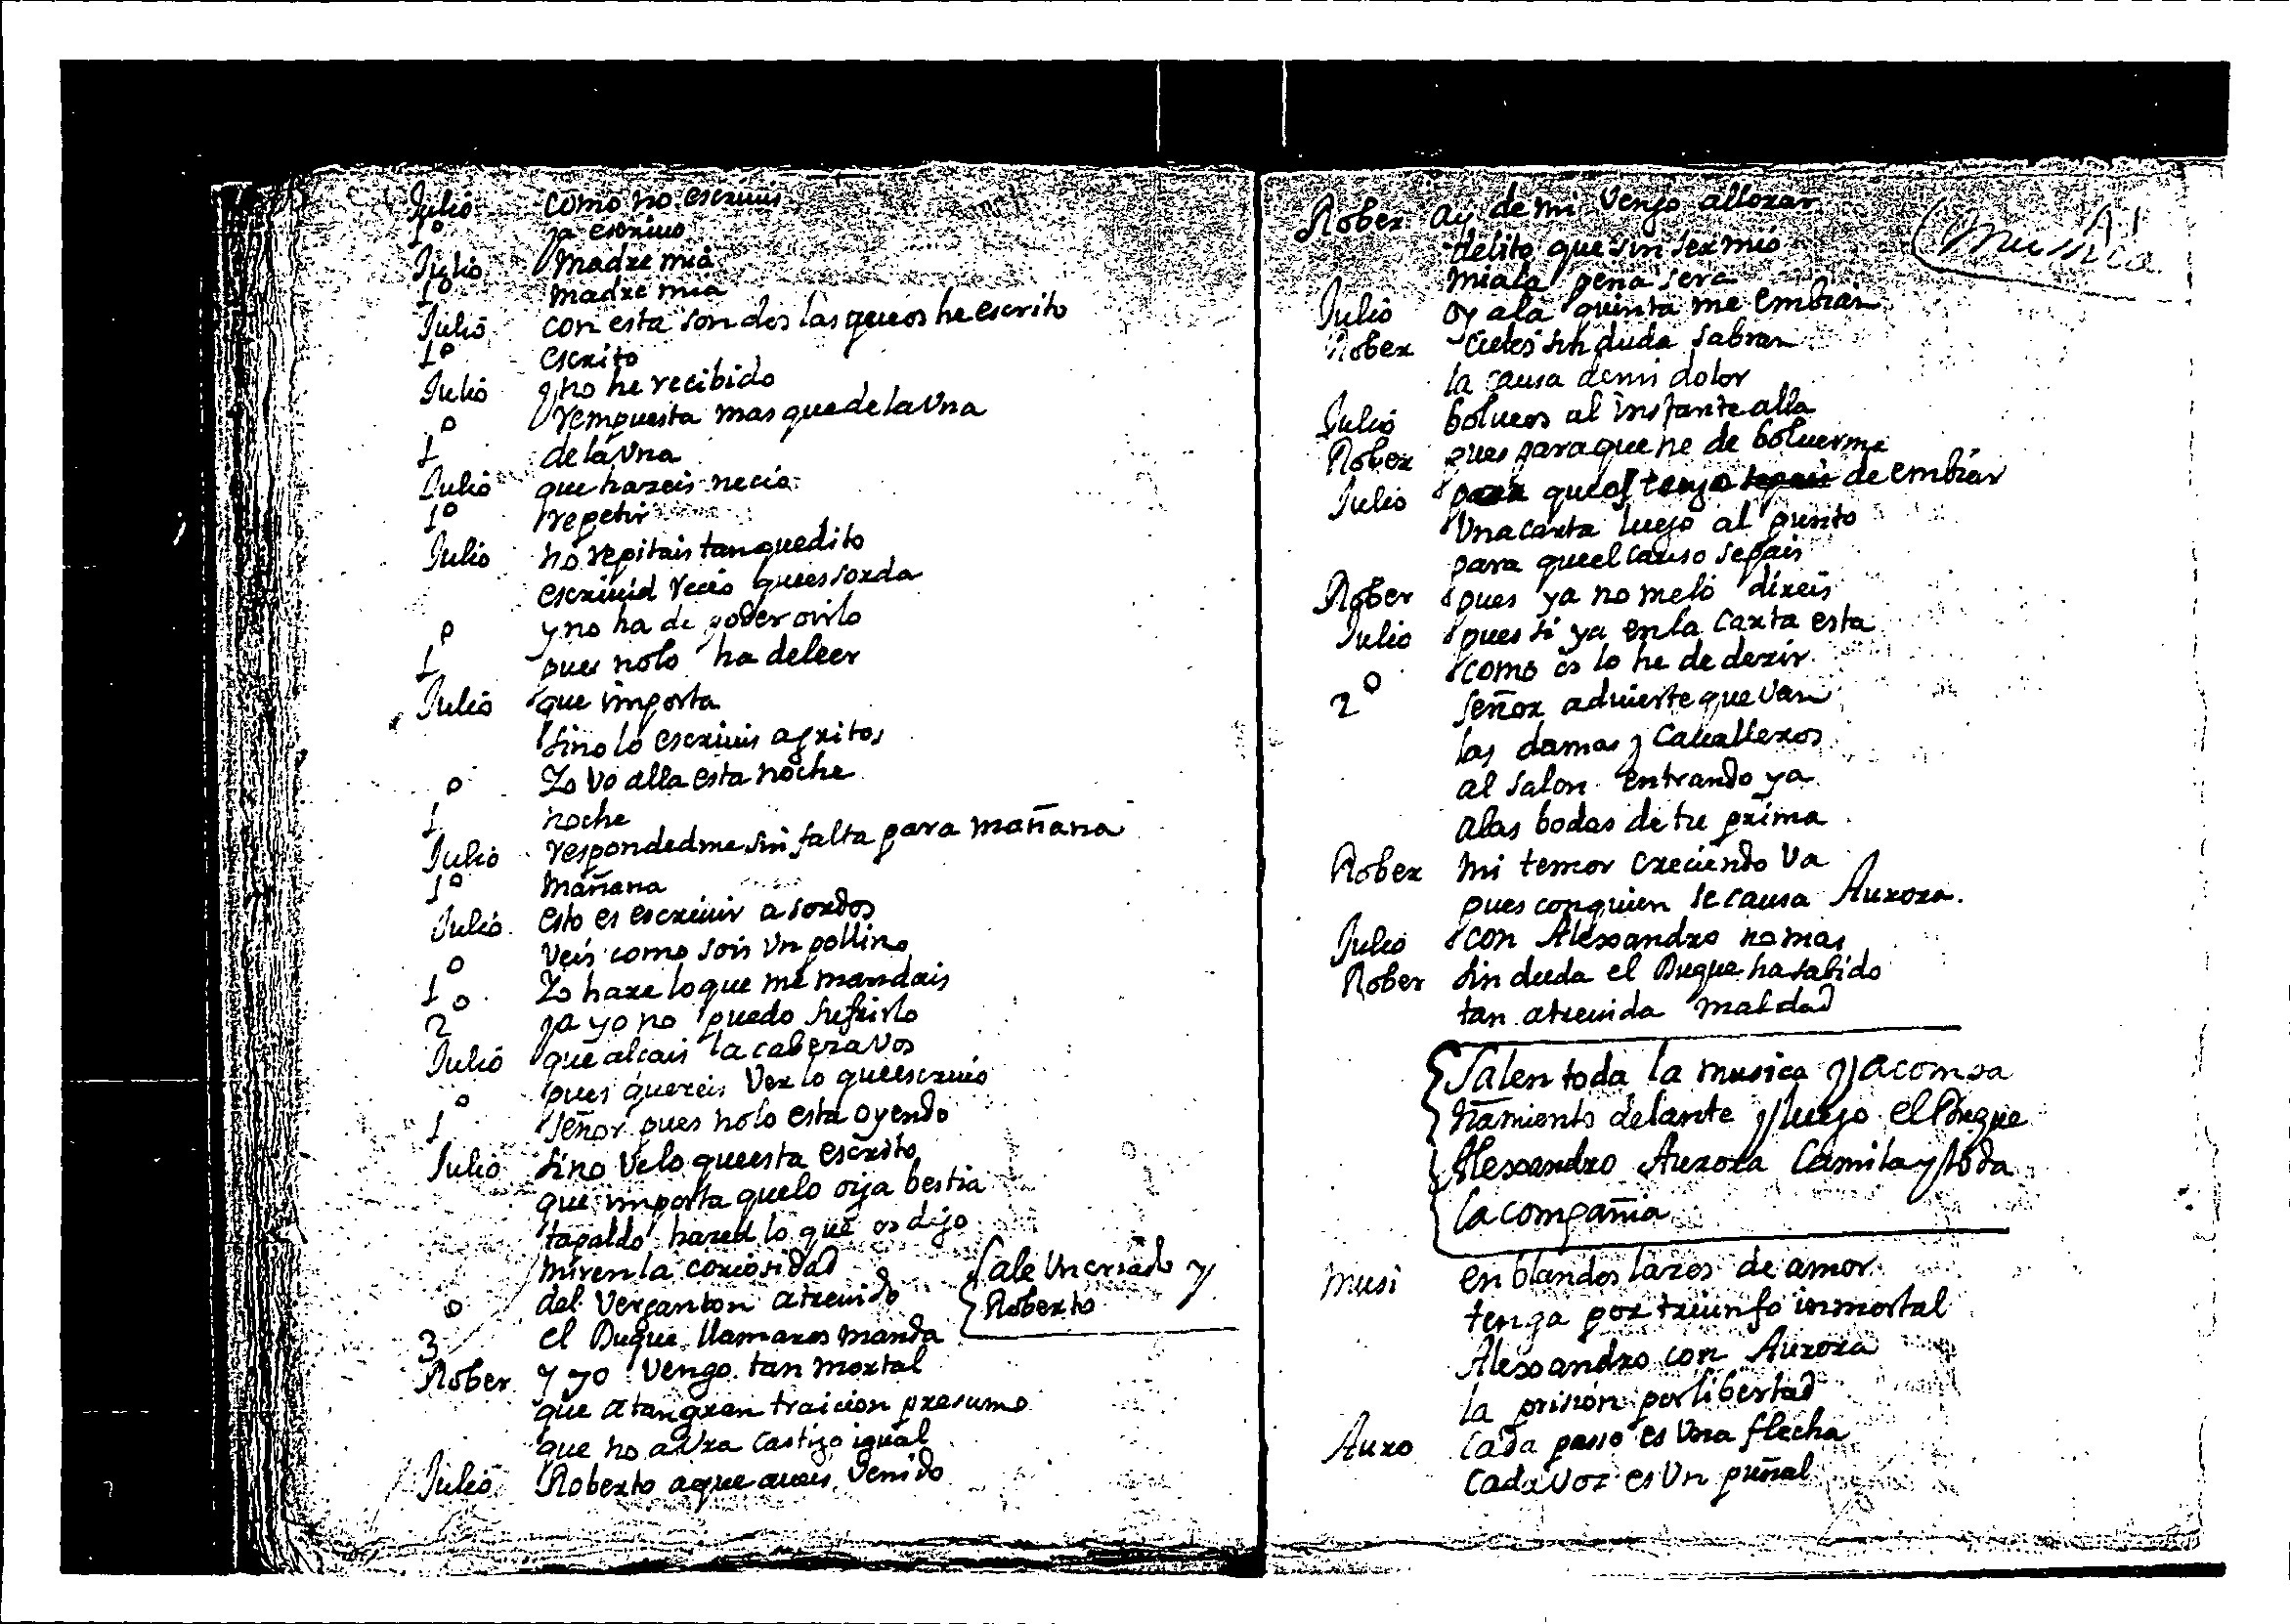 Julio como no escriuis
1º ya escriuo
Julio madre mia
1º madre mia
Julio con esta son dos las que os he escrito
1º escrito
Julio y no he recibido
rempuesta mas que de la Una
1º de la Una
Julio que hazeis necio
1º repetir
Julio no repitais tan quedito
escriuid recio que es sorda
y no ha de poder oirlo
1º pues no lo ha de leer
Julio que importa
sino lo escriuis a gritos
Yo Vo alla esta noche
1º noche
Julio respondedme sin falta para mañana
1º mañana
Julio esto es escriuir a sordos
Veis como sois Un pollino
1º Yo hare lo que me mandais
2º ya yo no puedo sufrirlo
Julio que alcais la cabeza Vos
pues quereis Ver lo que escriuo
1º señor pues no lo esta oyendo
Julio sino Ve lo que esta escrito
que importa que lo oiga bestia
tapaldo hazed lo que os digo
miren la coriosidad
del Verganton atreuido
Sale Un criado y
Roberto
3º el Duque llamaros manda
Rober y yo Vengo tan mortal
que a tan gran traicion presumo
que no aura castigo igual
Julio Roberto a que auais Venido
Rober ay de mi Vengo allorar
delito que sin ser mio
mia la pena sera
Musica
Julio oy ala quinta me embian
Rober cielos sin duda sabran
la causa de mi dolor
Julio bolueos al instante alla
Rober pues para que he de boluerme
Julio para que os tengo de embiar
Una carta luego al punto
para que el causo sepais
Rober pues ya no me lo direis
Julio pues si ya en la carta esta
como os lo he de dezir
2º señor aduierte que Van
las damas y Caualleros
al salon entrando ya
alas bodas de tu prima
Rober mi temor creciendo Va
pues con quien se causa Aurora
Julio con Alessandro no mas
Rober sin duda el Duque ha sabido
tan atreuida maldad
Salen toda la musica y acompa
ñamiento delante y luego el Duque
Alessandro Aurora Camila y toda
la compañia
Musi en blandos lazos de amor
tenga por triunfo inmortal
Alessandro con Aurora
la prision por libertad
Auro cada passo es Una flecha
cada Voz es Un puñal